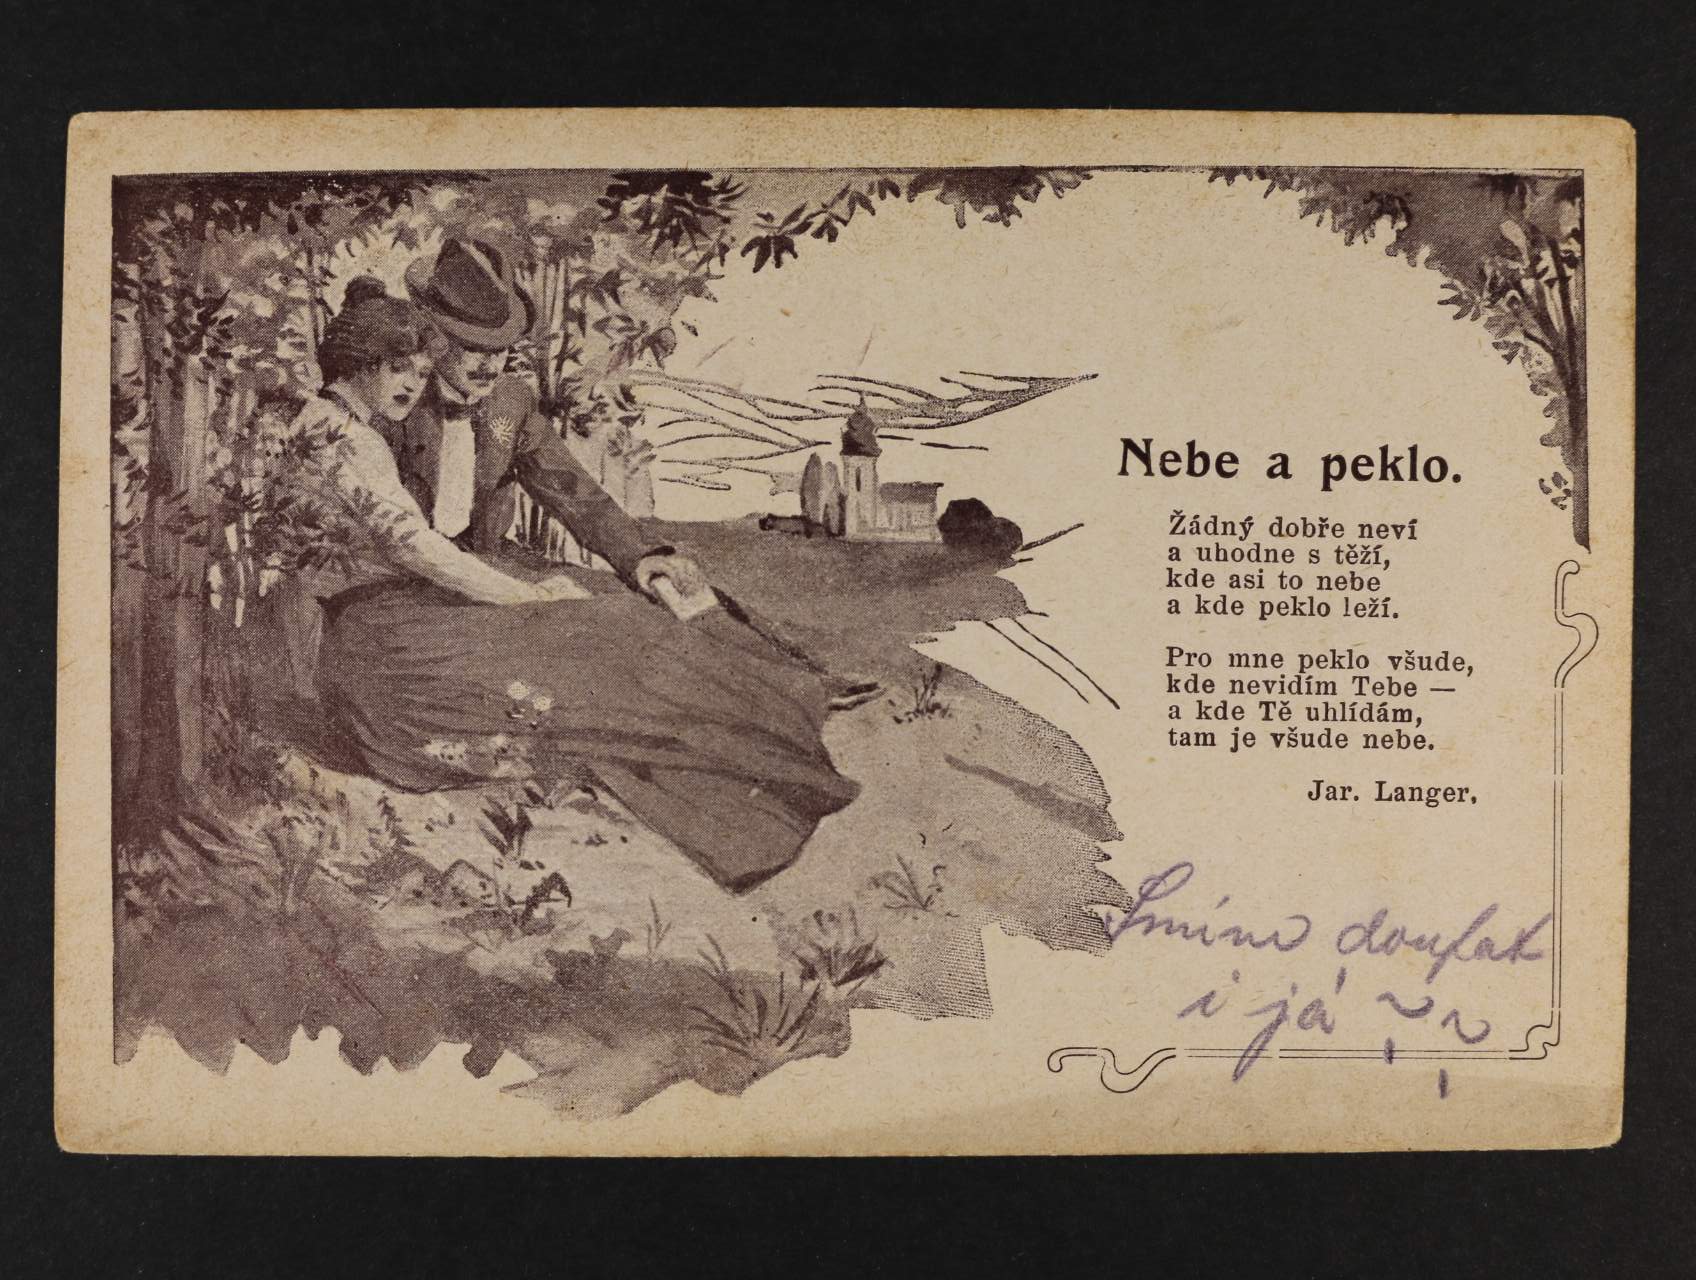 Nebe a peklo.
Žádný dobře neví
a uhodne s těží,
kde asi to nebe
a kde peklo leží.
Pro mne peklo všude,
kde nevidím Tebe —
a kde Tě uhlídám,
tam je všude nebe.
Jar. Langer.
Smím doufat
i já ? ?